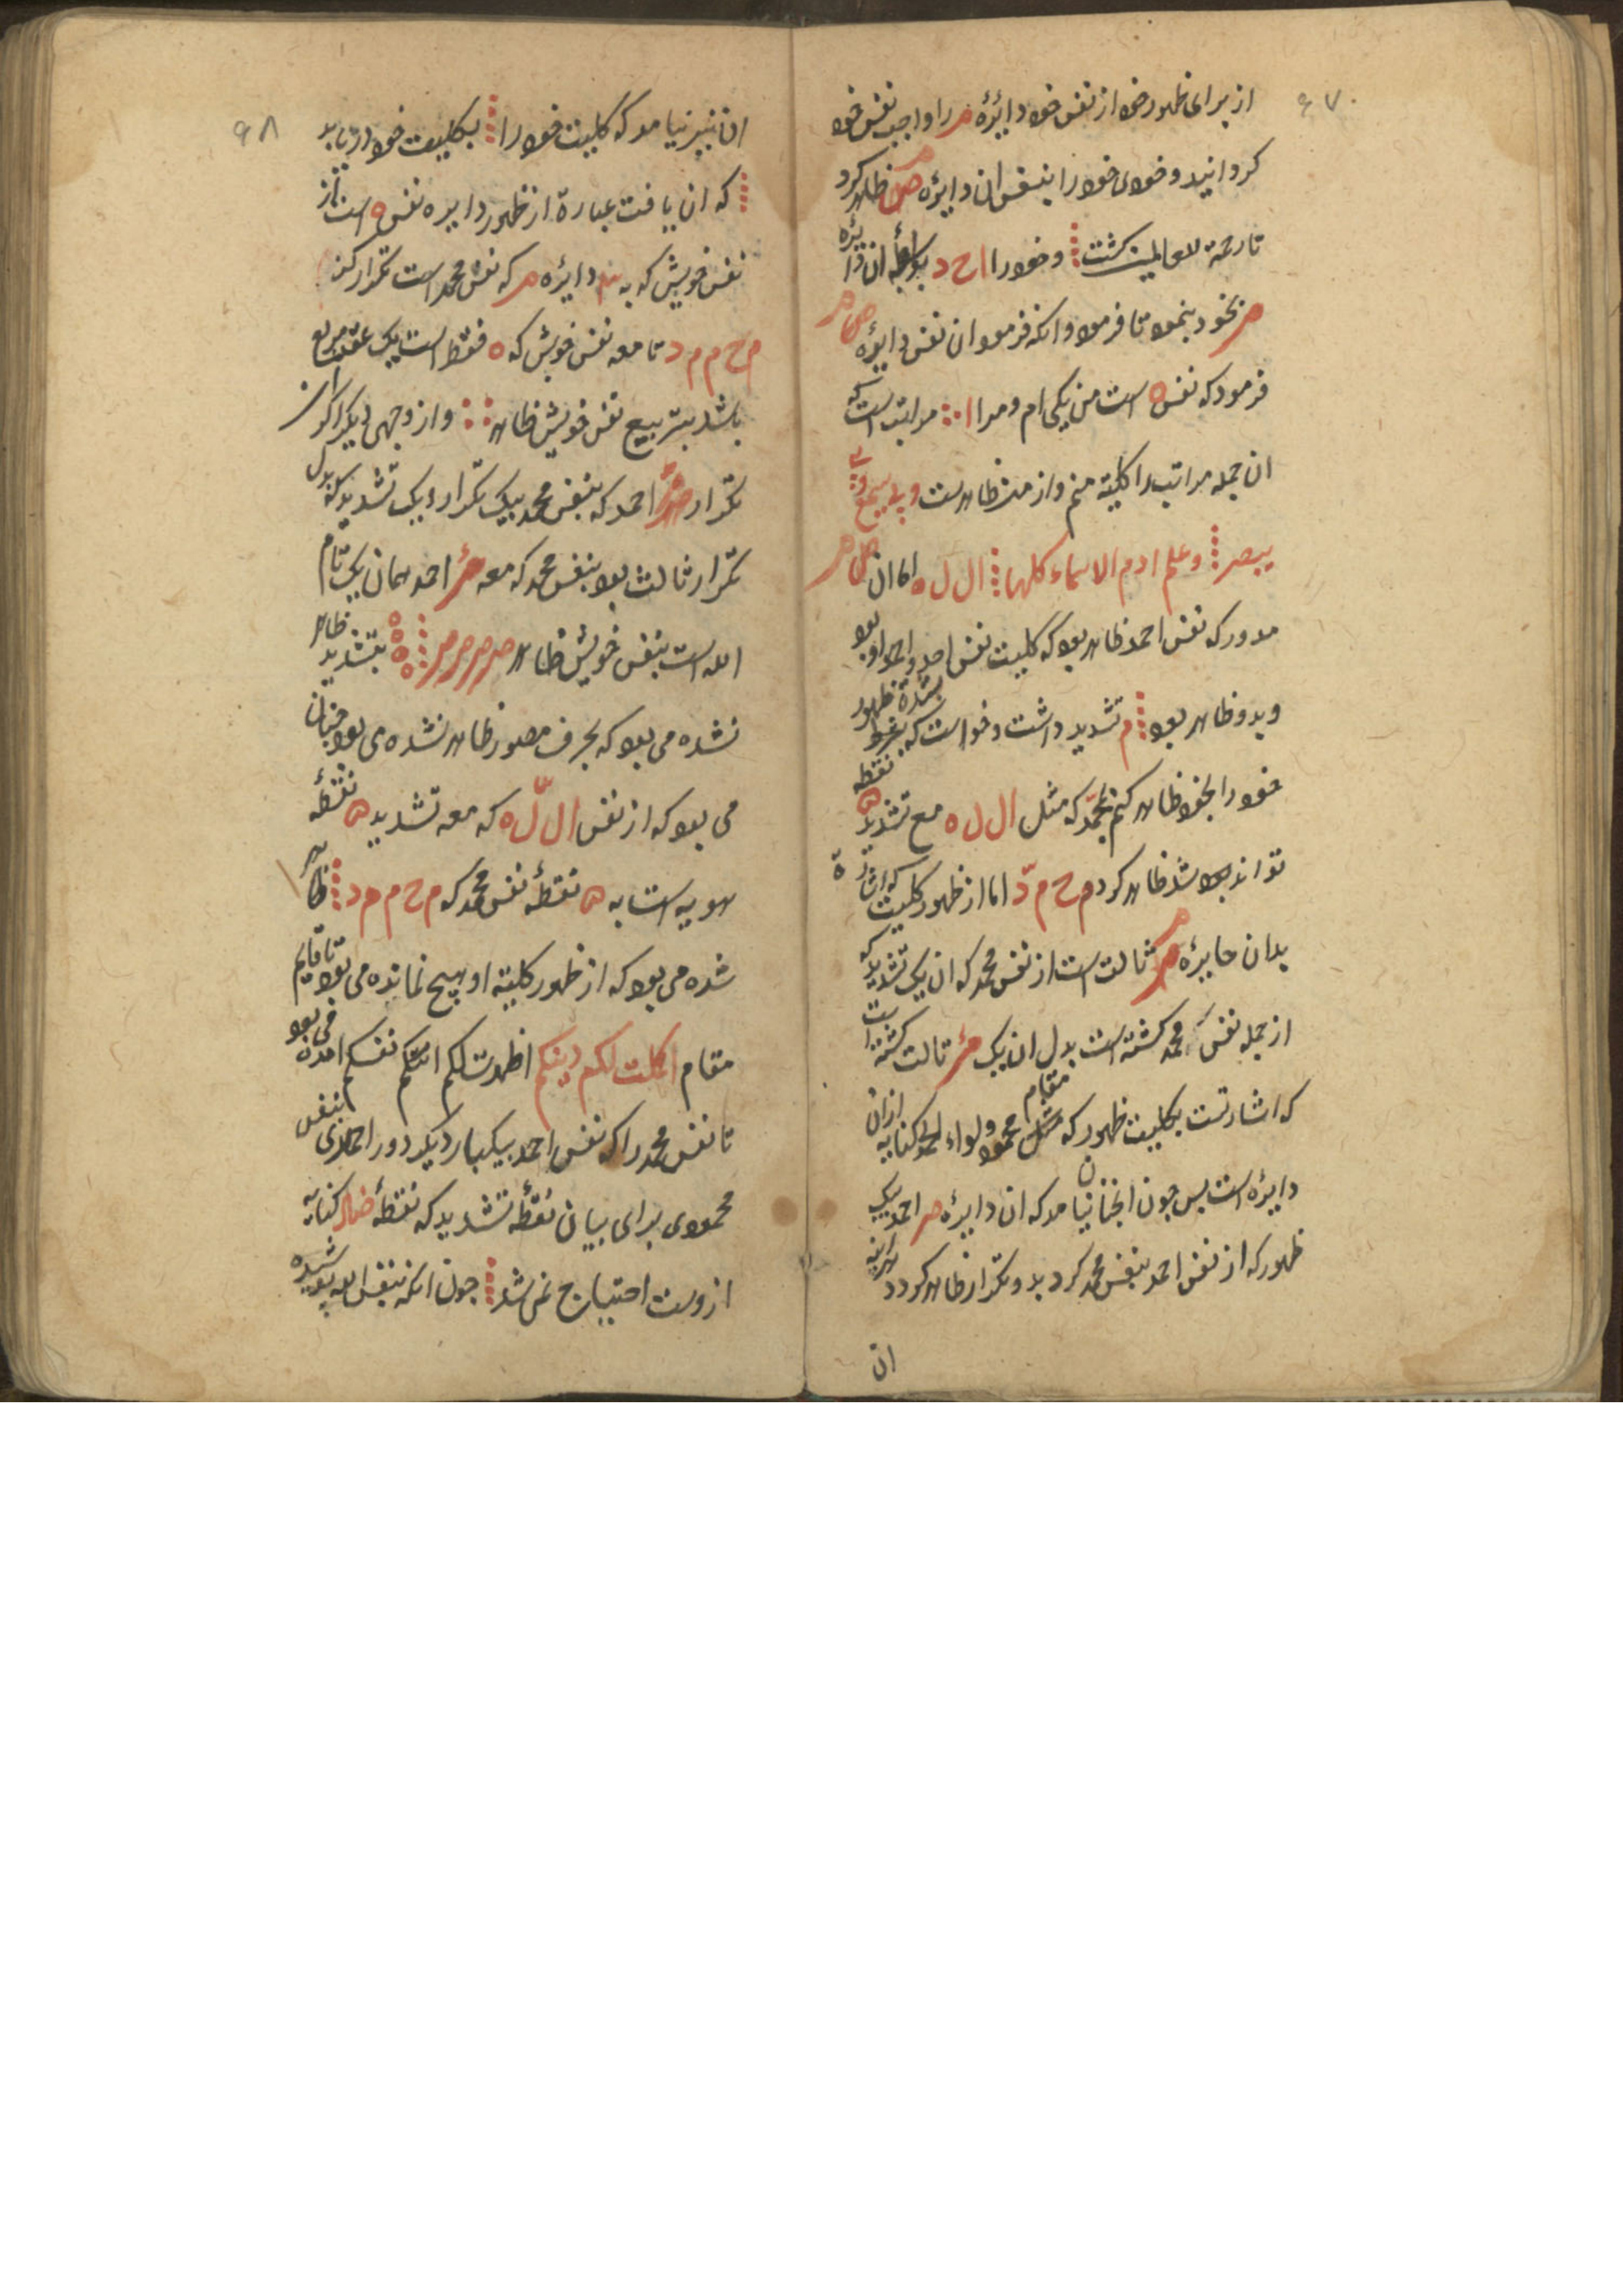 ۶۷
از برای ظهور خود از نفس خود دایرٔه را واجب نفس خود
کردانید و خودی خود را بنفس ان دایرٔه ظاهر کرد
تا رحمة للعالمین کشت و خود را ا ح د بواسطهٔ ان دایرٔه
بخود بنمود تا فرمود و انکه فرمود ان نفس دایرٔه
فرمود که نفس ه است من یکی ام و مرا مراتب است که
ان جمله مراتب را کلیته منم و از من ظاهرست و بی یسمع و بی
یبصر و علم ادم الاسماء کلها ال ل ه اما ان
مدور که نفس احمد ظاهر بود که کلیت نفس احد و احمد او بود
و بدو ظاهر بود م تشدید داشت و خواست که بشدة ظهور
خود را بخود ظاهر کنم بمحمد که مثل ال ل ه مع تشدید ه نقطه
تواند بود شد ظاهر کرد م ح م ّد اما از ظهور کلیت که اشارة
بدان دایرٔه ثالث است از نفس محمد که ان یک تشدید که
از جمله نفس محمد کشته است بدل ان یک ثالث کشته است
که اشارتست بکلیت ظهور که مقام محمود و لواء الحمد کنایه از ان
دایرٔه است پس چون انچنان نیامد که ان دایرٔه احمد یک
ظهور که از نفس احمد بنفس محمد کرد بدو تکرار ظاهر کردد
ان
۶۸
ان نیز نیامد که کلیت خود را بکلیت خود دریابد
که ان یافت عبارة از ظهور دایره نفس ه است از
نفس خویش که به دایرٔه که نفس محمد است تکرار کند
م ح م م د تا معه نفس خویش که ه فقط است یک عقد مربع
باشد بتربیع نفس خویش ظاهر و از وجهی دیکر اکر ان
تکرار احمد که بنفس محمد بیک تکرار و یک تشدید که بدل
تکرار ثالث بود بنفس محمد که معه احمد همان یک تمام
الله است بنفس خویش ظاهر بتشدید ظاهر
نشده می بود که بحرف مصور ظاهر نشده می بود چنان
می بود که از نفس ال ّل ه که معه تشدید ه نقطهٔ
هویه است به ه نقطهٔ نفس محمد که م ح م م د ظاهر
شده می بود که از ظهور کلیته او هیچ نمانده می بود تا قایم
مقام اکملت لکم دینکم اظهرت لکم نفسکم امده می بود
تا نفس محمد را که نفس احمد بیکبار دیکر دور احمدی بنفس
محمودی برای بیان نقطه تشدید که نقطهٔ کنایه
ازوست احتیاج نمی شد چون انکه بنفس الله پوشیده